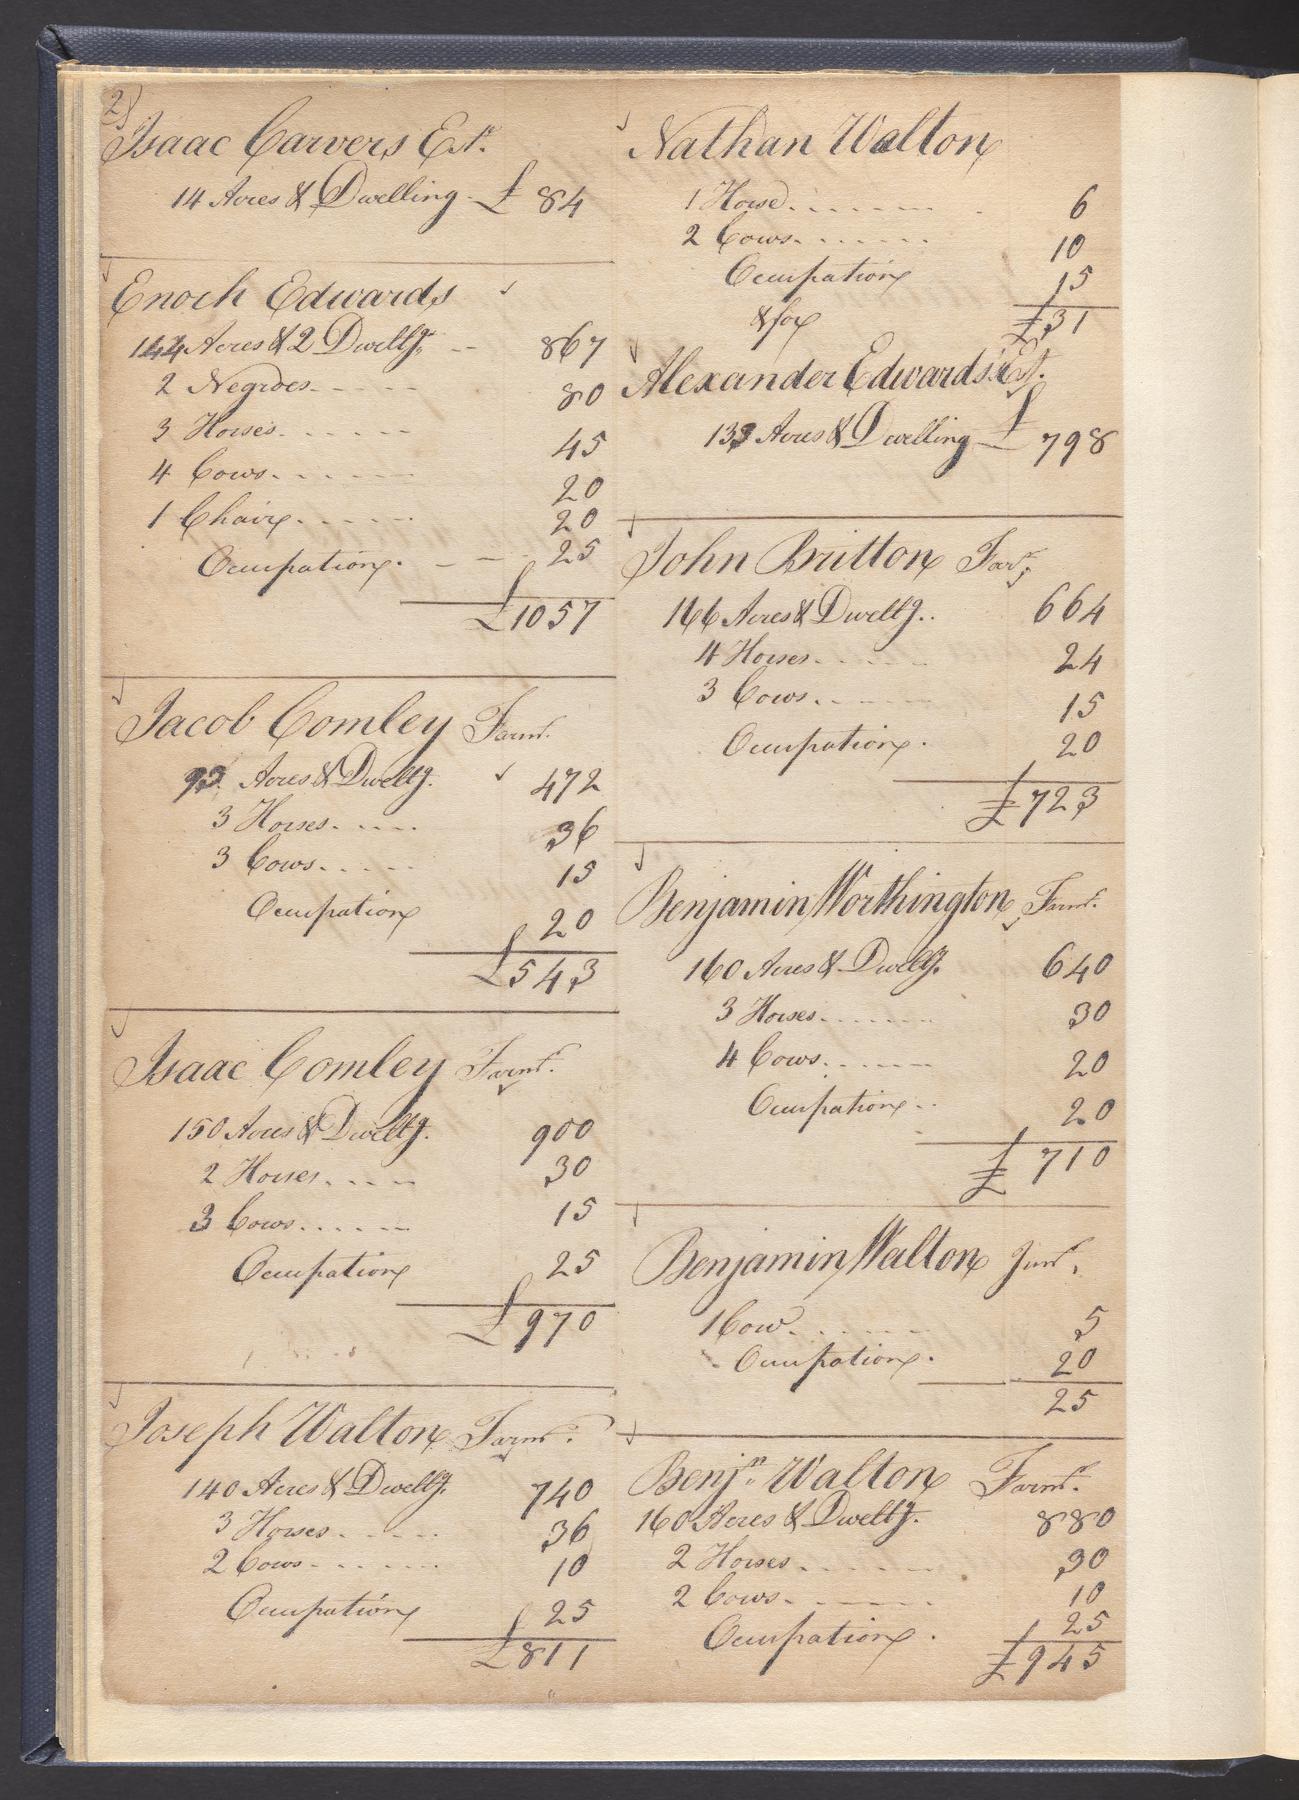 2)
Isaac Carvers Est.
14 Acres & Dwelling - £ 84
Enoch Edwards
144 Acres & 2 Dwellg. 867
2 Negroes 80
3 Horses 45
4 Cows 20
1 Chair 20
Occupation 25
£1057
Jacob Comley Farmr.
Acres & Dwellg. 472
3 Horses 36
3 Cows 15
Occupation 20
£543
Isaac Comley Farmr.
150 Acres & Dwellg. 900
2 Horses 30
3 Cows 15
Occupation 25
£970
Joseph Walton Farmr.
140 Acres & Dwellg. 740
3 Horses 36
2 Cows 10
Occupation 25
£811
Nathan Walton
1 Horse 6
2 Cows 10
Occupation 15
£31
Alexander Edwards's Est.
133 Acres & Dwelling - £ 798
John Britton Farr.
166 Acres & Dwellg. 664
4 Horses 24
3 Cows 15
Occupation 20
£723
Benjamin Worthington Farmr.
160 Acres & Dwellg. 640
3 Horses 30
4 Cows 20
Occupation 20
£710
Benjamin Walton Junr.
1 Cow 5
Occupation 20
25
Benjn. Walton Farmr.
160 Acres & Dwellg. 880
2 Horses 30
2 Cows 10
Occupation 25
£945